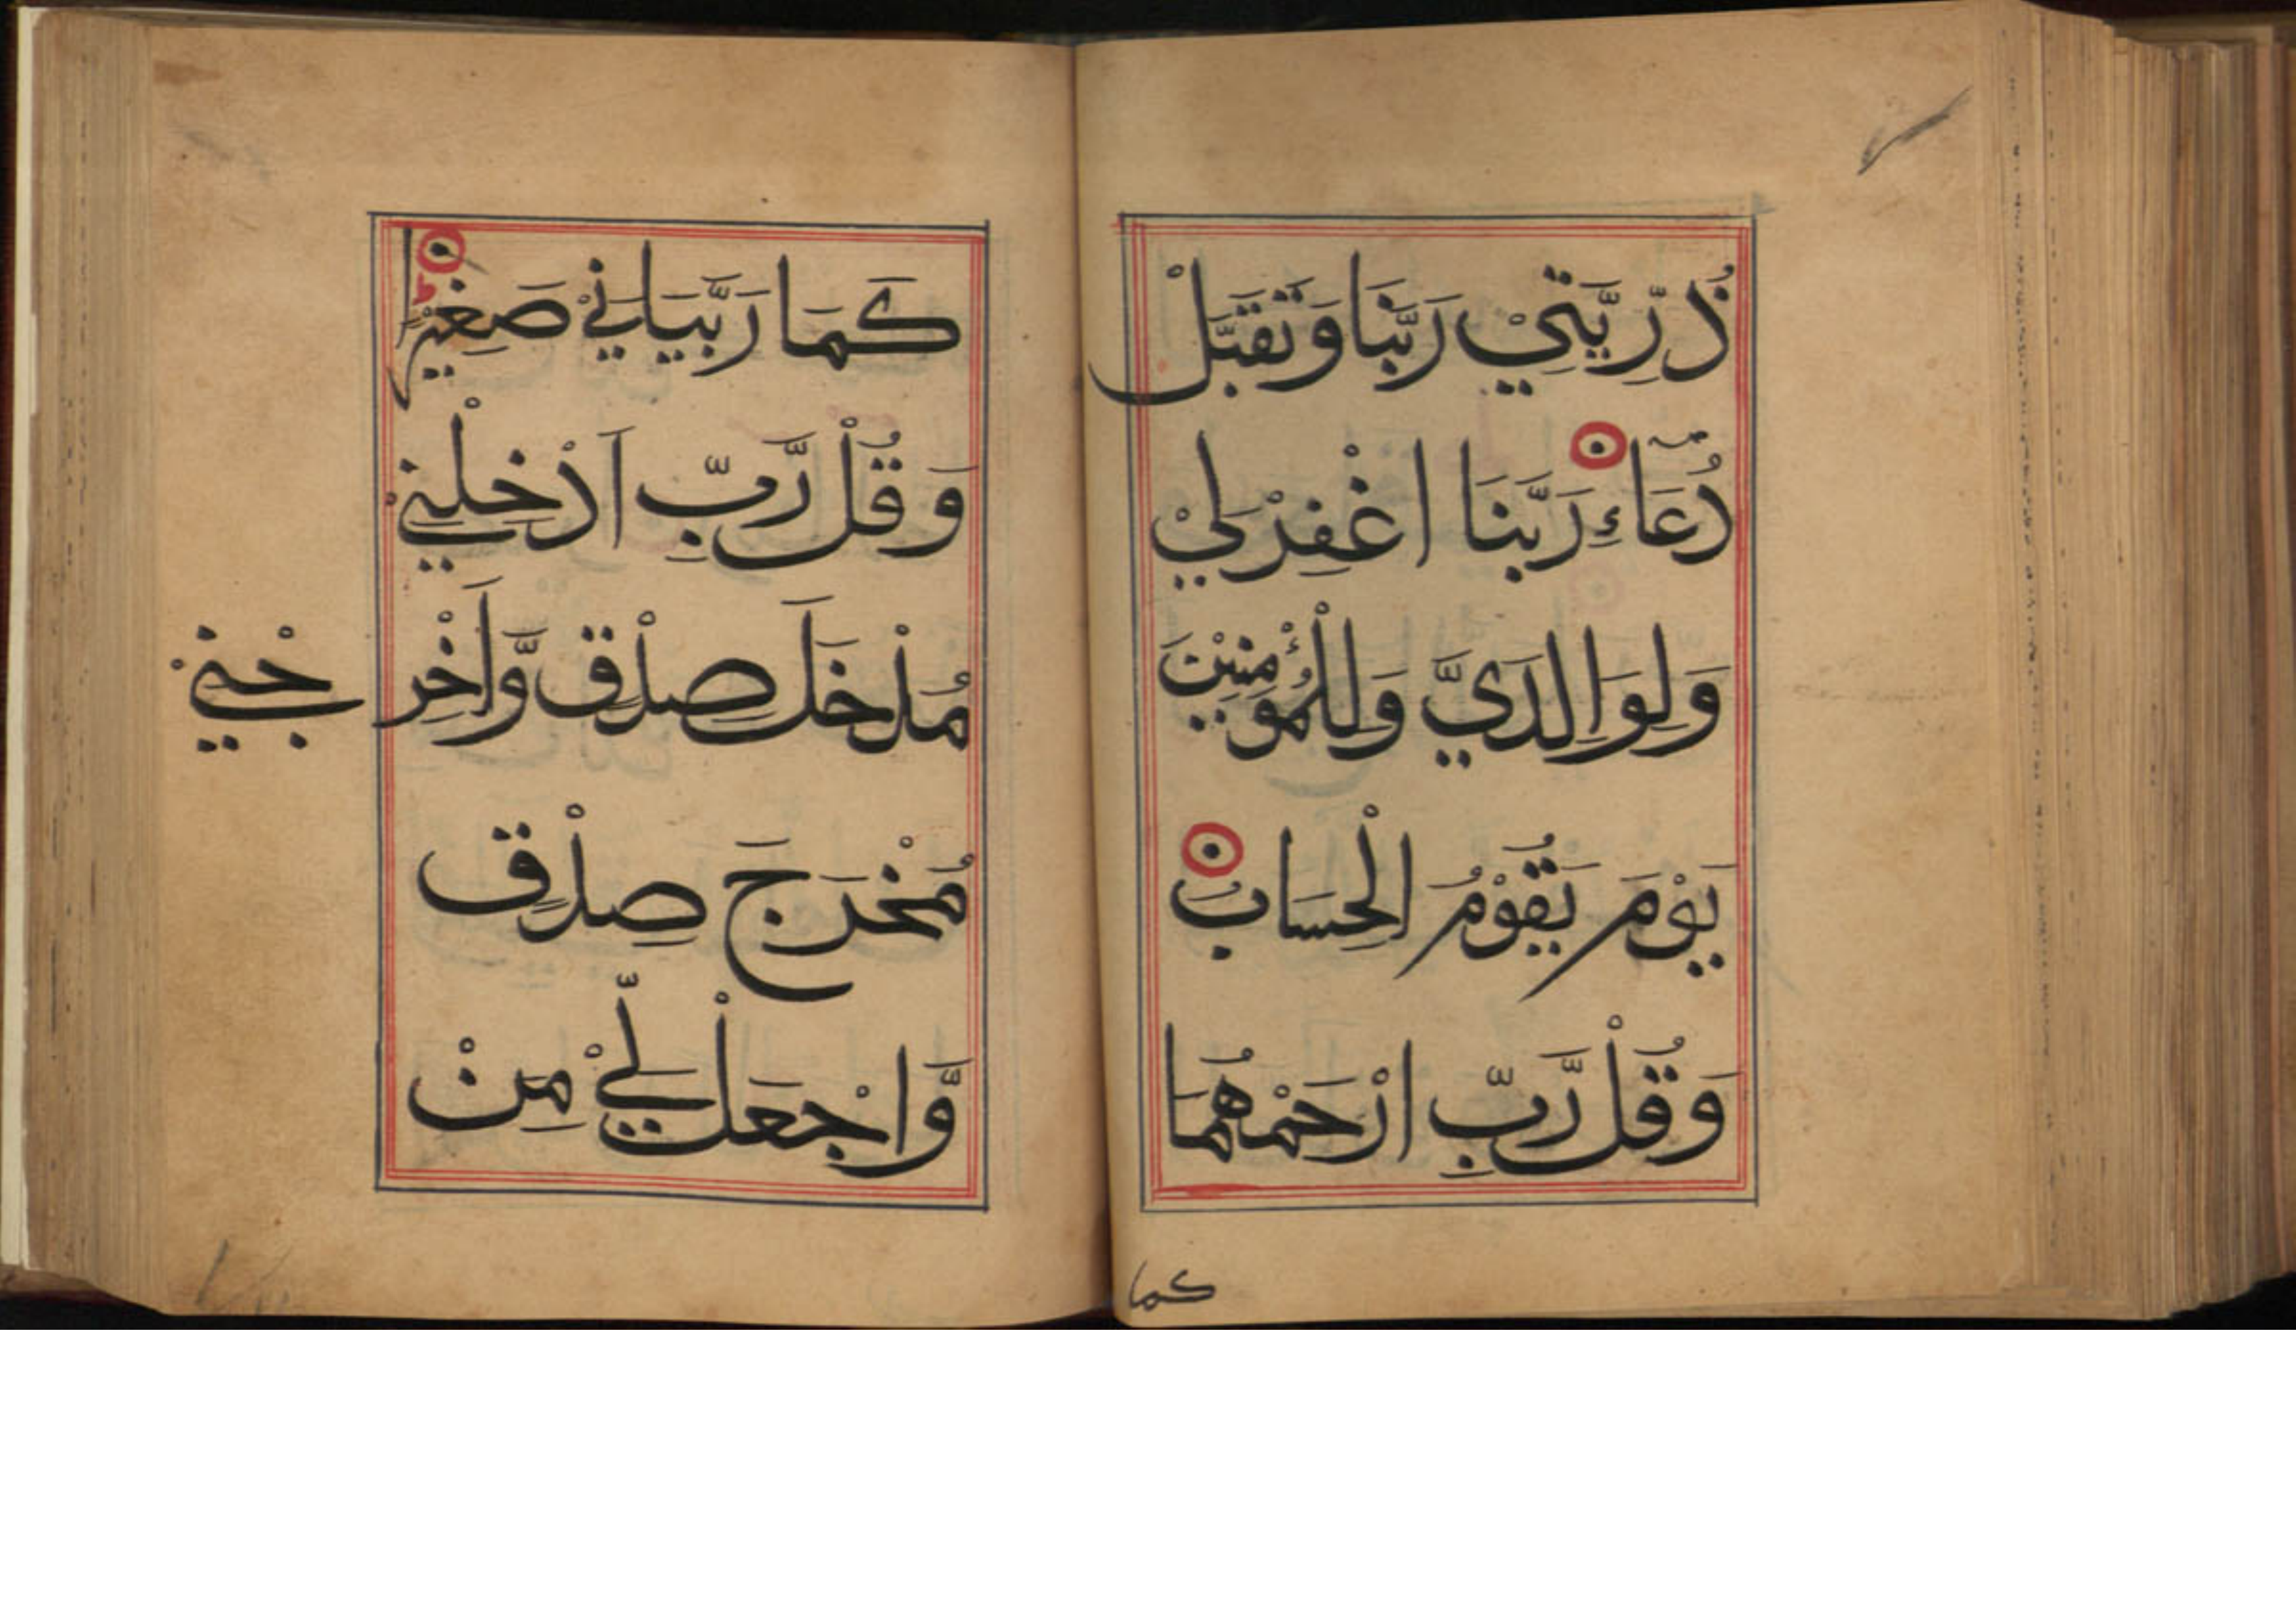 ذُرِّيَّتِيْ رَبَّنَا وَتَقَبَّلْ
دُعَاءِ رَبَّنَا اغْفِرْ لِيْ
وَلِوَالِدَيَّ وَلِلْمُؤْمِنِيْنَ
يَوْمَ يَقُوْمُ الْحِسَابُ
وَقُلْ رَّبِّ ارْحَمْهُمَا
كما
كَمَا رَبَّيَانِيْ صَغِيْرًا
وَقُلْ رَّبِّ اَدْخِلْنِيْ
مُدْخَلَ صِدْقٍ وَّاَخْرِجْنِيْ
مُخْرَجَ صِدْقٍ
وَّاجْعَلْ لِّيْ مِنْ